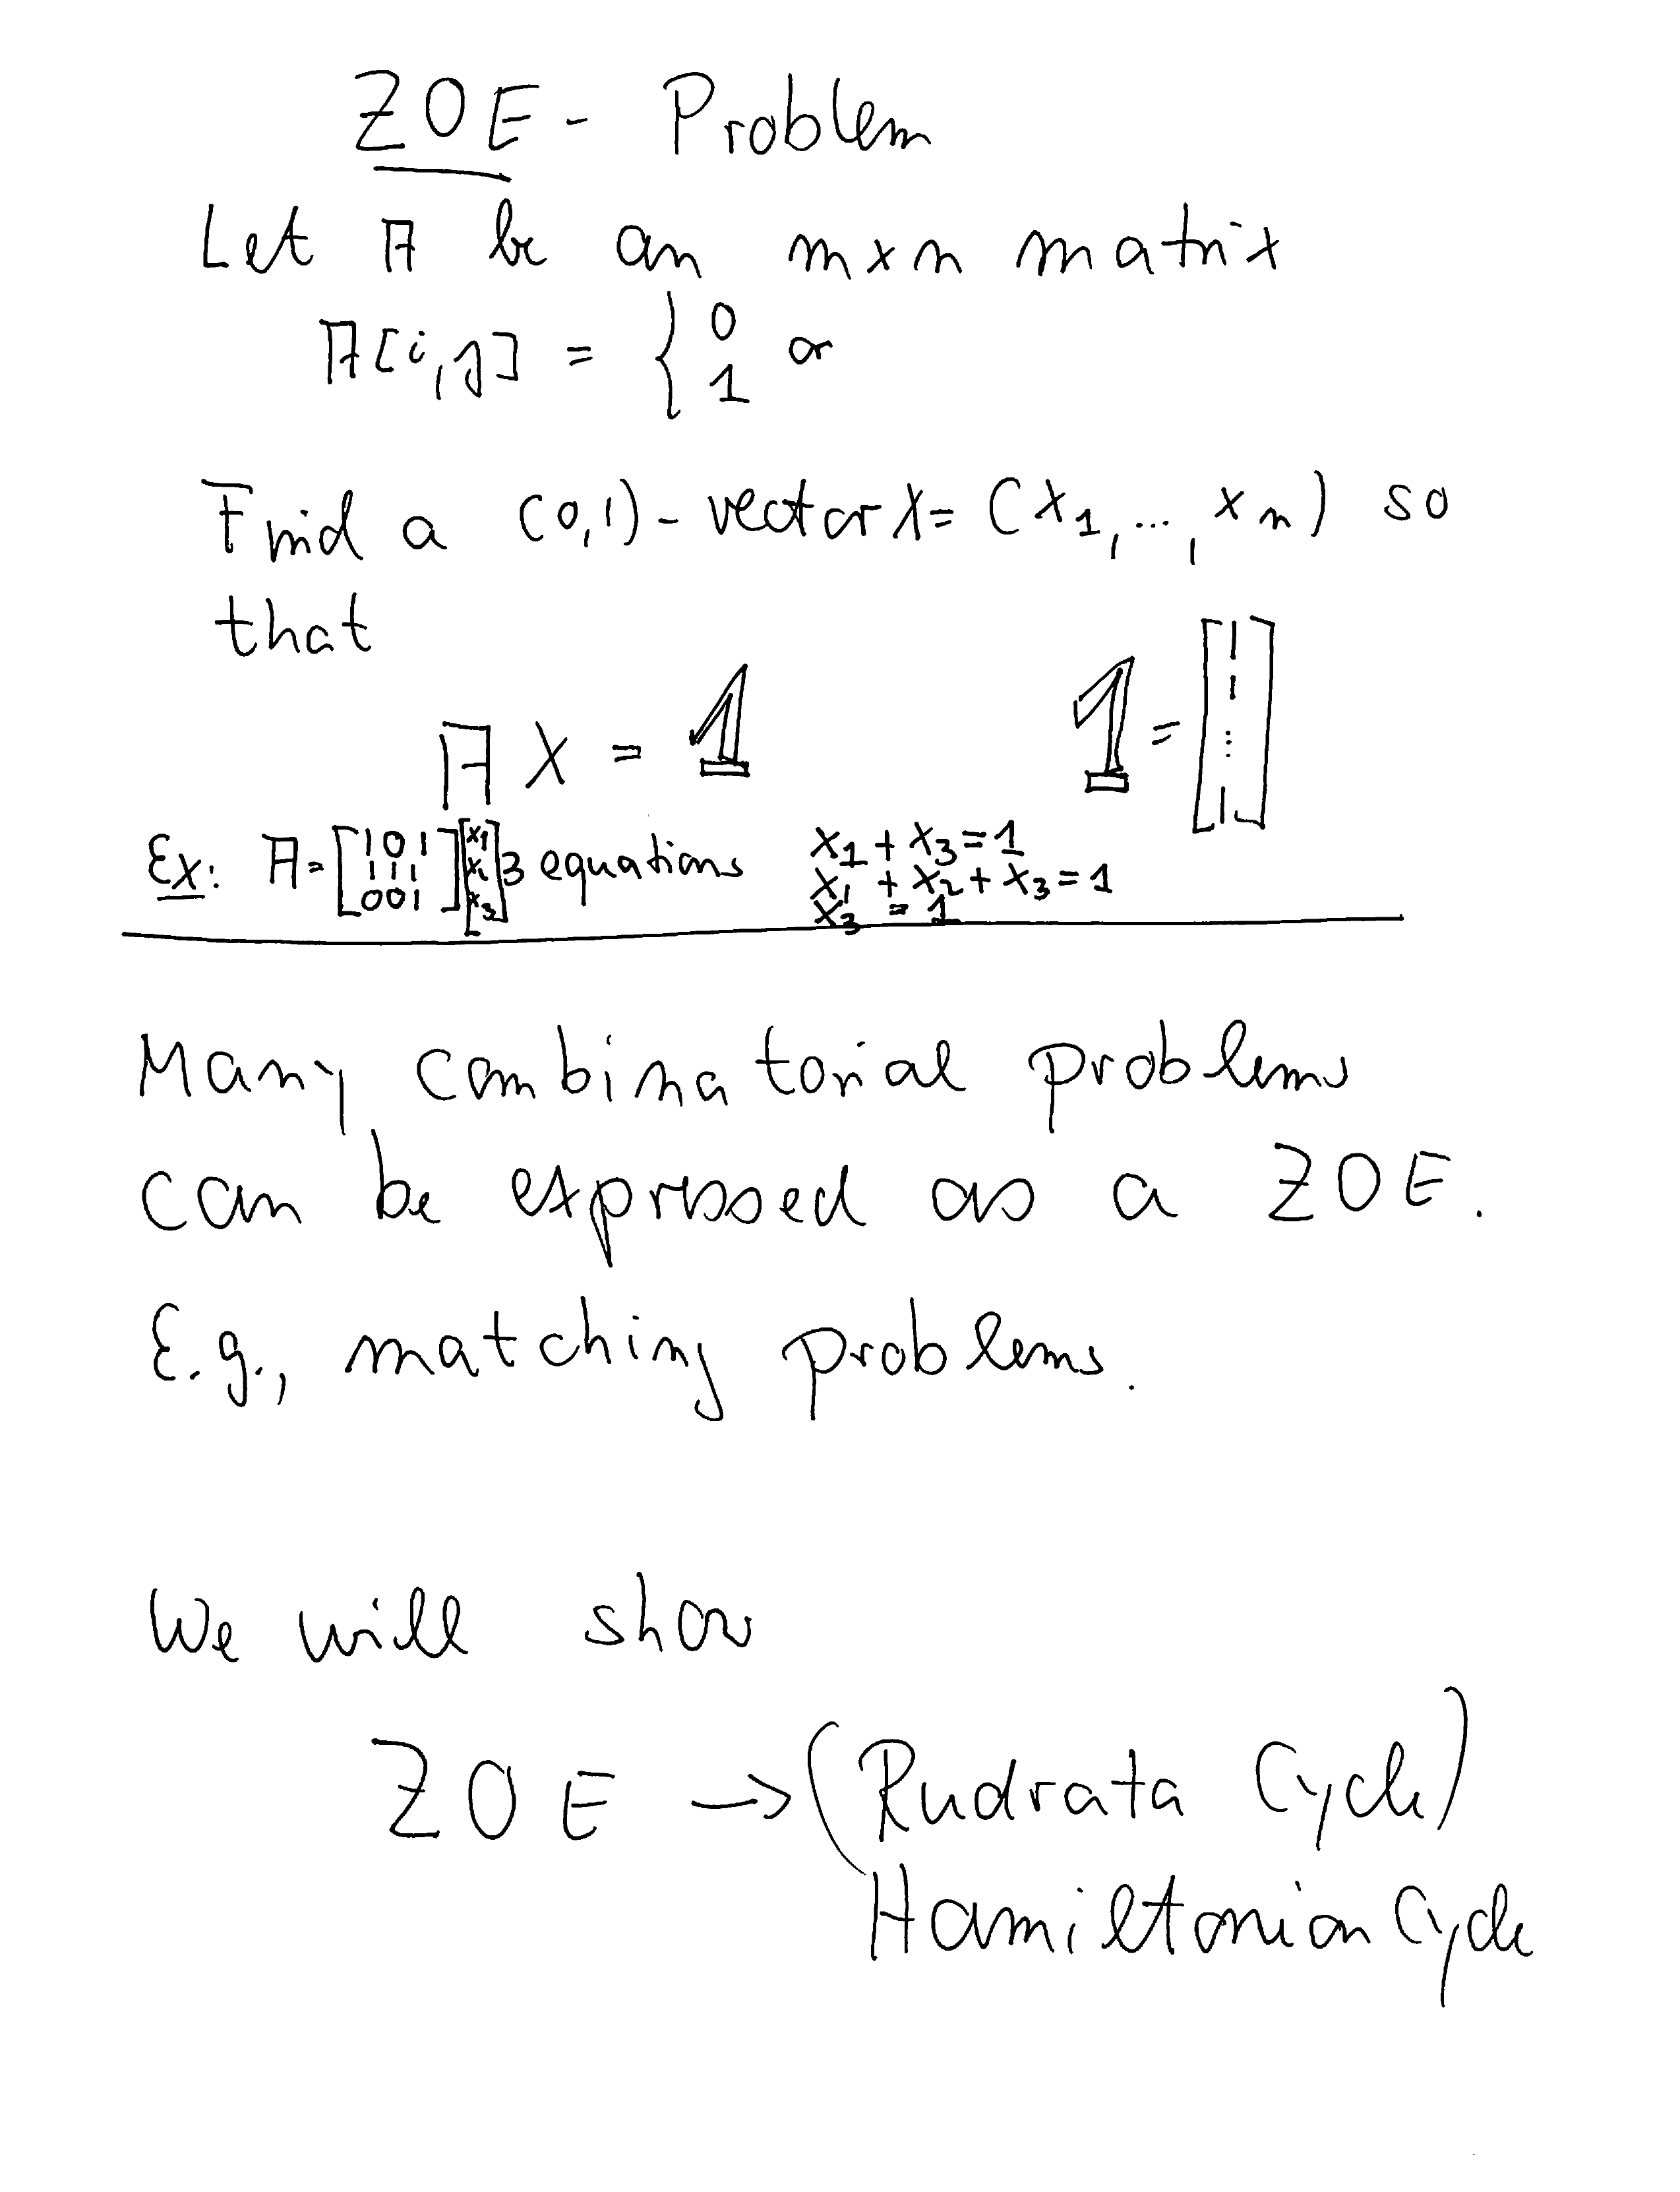 ZOE - Problem
Let A be an m x n matrix
A[i,j] = { 0 or
1
Find a (0,1) - vector X = (x1, ..., xn) so
that
A X = 1   1 = [1 1 ... 1]
Ex: A = [1 0 1 1 1 1 0 0 1] [x1 x2 x3] 3 equations
x1 + x3 = 1
x1 + x2 + x3 = 1
x3 = 1
Many combinatorial problems
can be expressed as a ZOE.
E.g., matching problems.
We will show
ZOE -> (Rudrata Cycle)
Hamiltonian Cycle